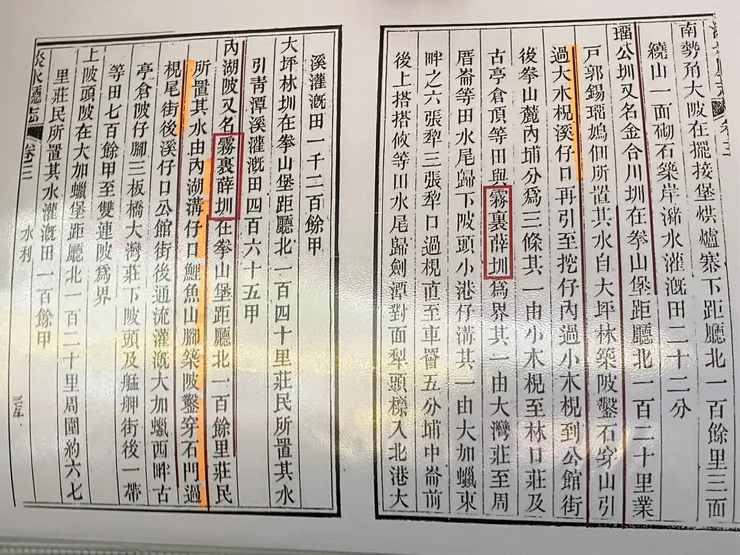 南勢角大陂在擺接堡烘爐寨下距廳北一百餘里三面
繞山一面砌石築岸瀦水灌漑田二十二分
瑠公圳又名金合川圳在拳山堡距廳北一百二十里業
戸郭錫瑠鳩佃所置其水自大坪林築陂鑿石穿山引
過大木梘溪仔口再引至挖仔內過小木梘到公館街
後拳山麓內埔分爲三條其一由小木梘至林口莊及
古亭倉頂等田與霧裏薛圳爲界其一由大灣莊至周
厝崙等田水尾歸下陂頭小港仔溝其一由大加蠟東
畔之六張犁三張犁口過梘直至車罾五分埔中崙前
後上搭搭攸等田水尾歸劍潭對面犁頭標入北港大
溪灌漑田一千二百餘甲
大坪林圳在拳山堡距廳北一百四十里莊民所置其水
引靑潭溪灌漑田四百六十五甲
內湖陂又名霧裏薛圳在拳山堡距廳北一百餘里莊民
所置其水由內湖溝仔口鯉魚山腳築陂鑿穿石門過
梘尾街後溪仔口公館街後通流灌漑大加蠟西畔古
亭倉陂仔腳三板橋大灣莊下陂頭及艋舺街後一帶
等田七百餘甲至雙連陂爲界
上陂頭陂在大加蠟堡距廳北一百二十里周圍約六七
里莊民所置其水灌漑田一百餘甲
淡水廳志 卷三 水利